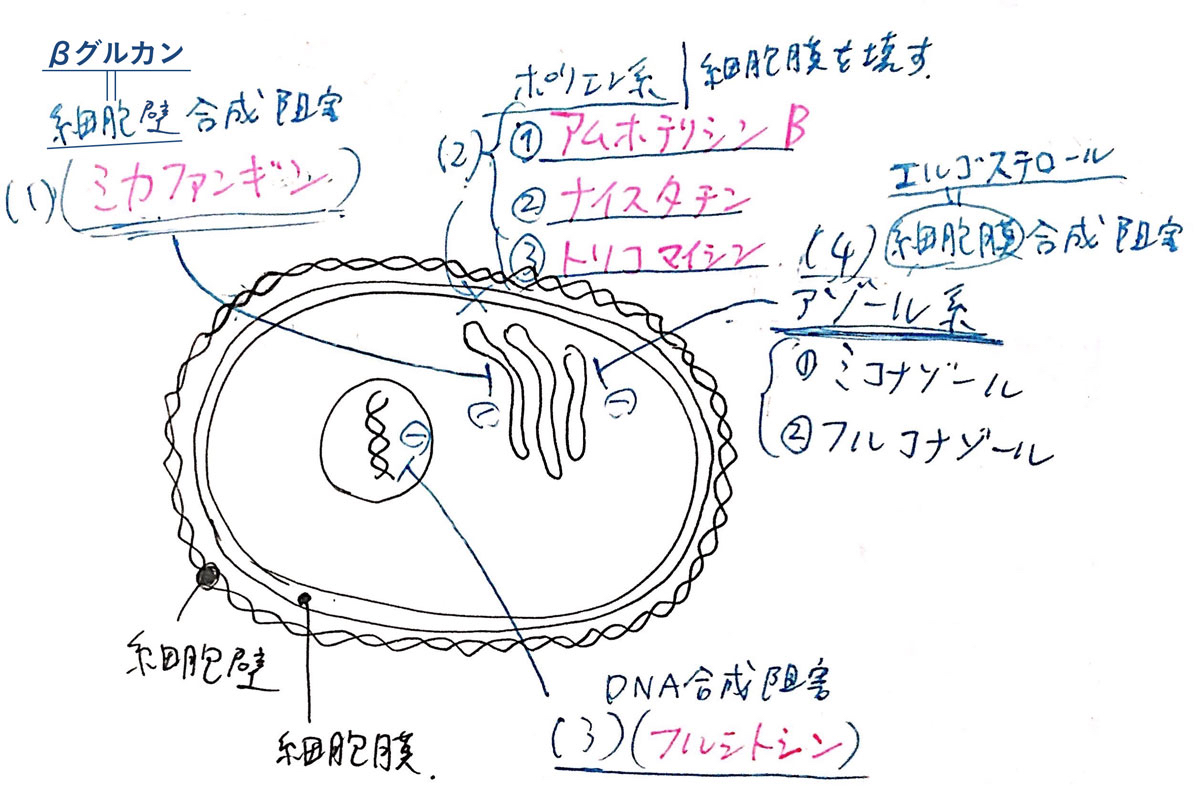 βグルカン
細胞壁 合成阻害
(1)(ミカファンギン)
ポリエン系 | 細胞膜を壊す.
(2) ① アムホテリシンB
② ナイスタチン
③ トリコマイシン
エルゴステロール
(4) 細胞膜 合成阻害
アゾール系
① ミコナゾール
② フルコナゾール
(-)
(-)
(-)
細胞壁
細胞膜.
DNA合成阻害
(3)(フルシトシン)